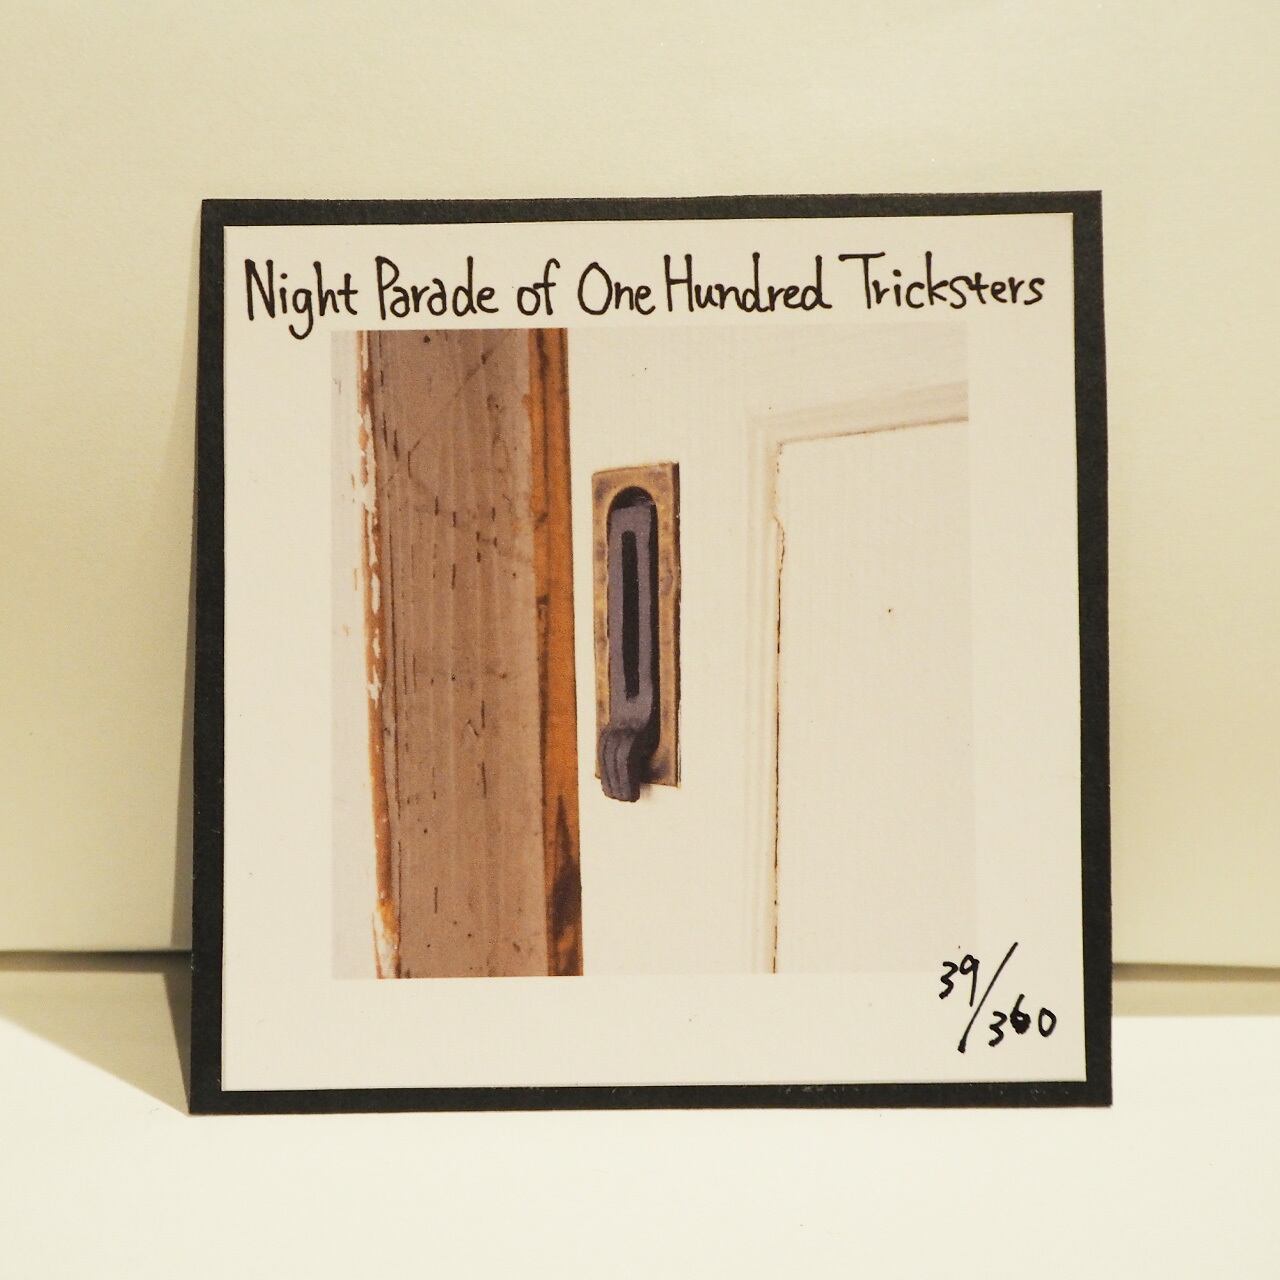 Night Parade of One Hundred Tricksters
39/360